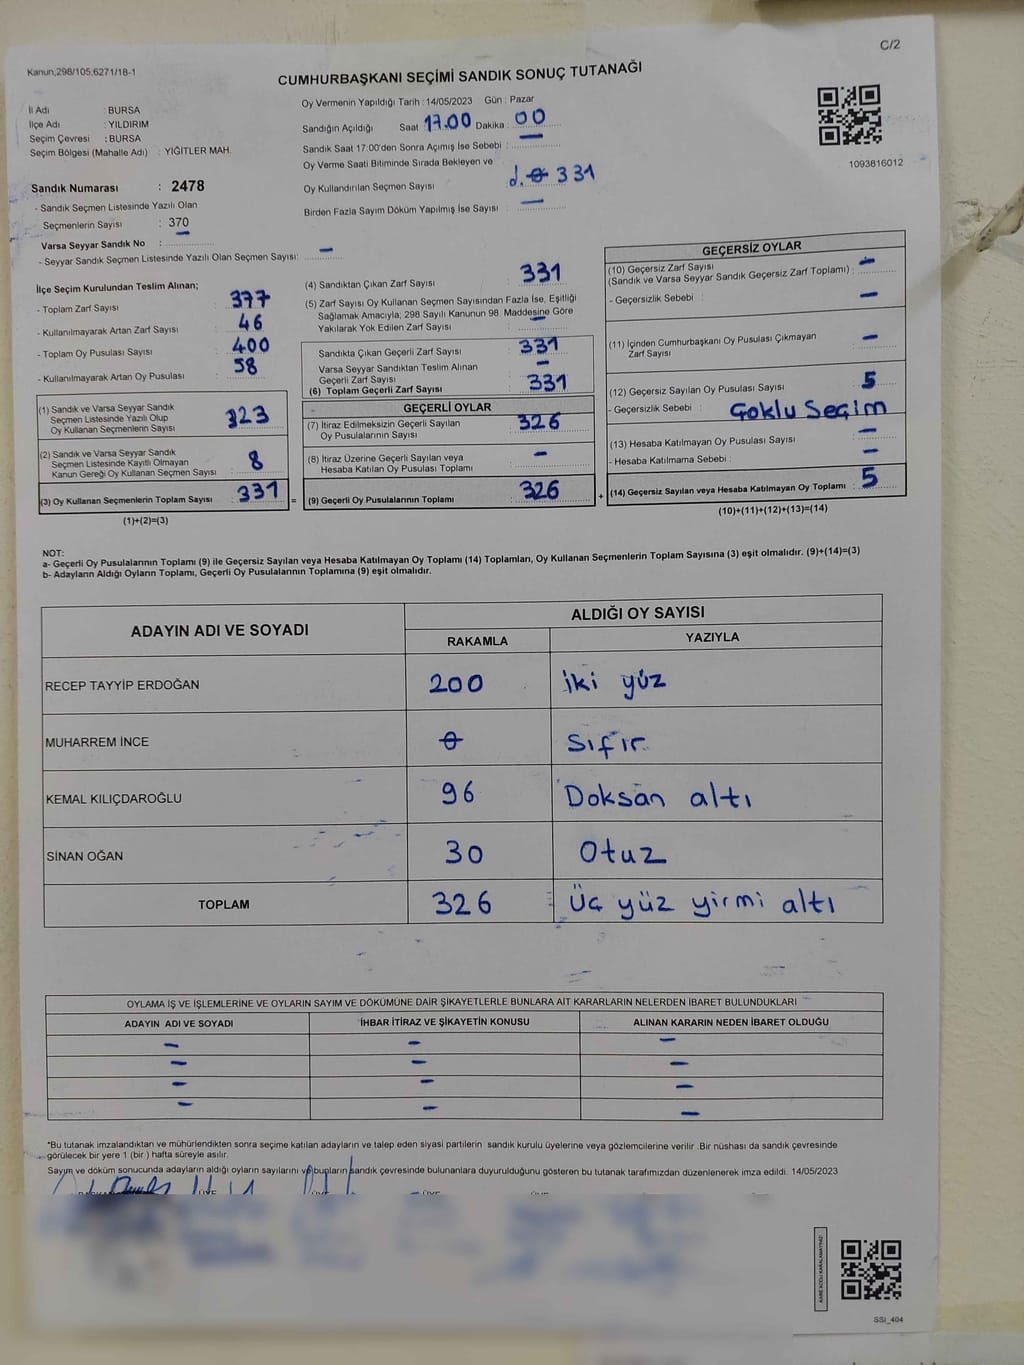 C/2
Kanun,298/105,6271/18-1
CUMHURBAŞKANI SEÇİMİ SANDIK SONUÇ TUTANAĞI
İl Adı : BURSA
İlçe Adı : YILDIRIM
Seçim Çevresi : BURSA
Seçim Bölgesi (Mahalle Adı) : YİĞİTLER MAH.
Sandık Numarası : 2478
- Sandık Seçmen Listesinde Yazılı Olan
Seçmenlerin Sayısı : 370
Varsa Seyyar Sandık No : -
- Seyyar Sandık Seçmen Listesinde Yazılı Olan Seçmen Sayısı: -
Oy Vermenin Yapıldığı Tarih : 14/05/2023 Gün : Pazar
Sandığın Açıldığı Saat 17.00 Dakika : 00
Sandık Saat 17:00'den Sonra Açımış İse Sebebi : -
Oy Verme Saati Bitiminde Sırada Bekleyen ve
Oy Kullandırılan Seçmen Sayısı 331
Birden Fazla Sayım Döküm Yapılmış İse Sayısı : -
1093816012
İlçe Seçim Kurulundan Teslim Alınan;
- Toplam Zarf Sayısı : 377
- Kullanılmayarak Artan Zarf Sayısı : 46
- Toplam Oy Pusulası Sayısı : 400
- Kullanılmayarak Artan Oy Pusulası : 58
(1) Sandık ve Varsa Seyyar Sandık
Seçmen Listesinde Yazılı Olup
Oy Kullanan Seçmenlerin Sayısı : 323
(2) Sandık ve Varsa Seyyar Sandık
Seçmen Listesinde Kayıtlı Olmayan
Kanun Gereği Oy Kullanan Seçmen Sayısı : 8
(3) Oy Kullanan Seçmenlerin Toplam Sayısı : 331 =
(1)+(2)=(3)
(4) Sandıktan Çıkan Zarf Sayısı : 331
(5) Zarf Sayısı Oy Kullanan Seçmen Sayısından Fazla İse, Eşitliği
Sağlamak Amacıyla; 298 Sayılı Kanunun 98. Maddesine Göre
Yakılarak Yok Edilen Zarf Sayısı : -
Sandıkta Çıkan Geçerli Zarf Sayısı : 331
Varsa Seyyar Sandıktan Teslim Alınan
Geçerli Zarf Sayısı : -
(6) Toplam Geçerli Zarf Sayısı : 331
GEÇERLİ OYLAR
(7) İtiraz Edilmeksizin Geçerli Sayılan
Oy Pusulalarının Sayısı : 326
(8) İtiraz Üzerine Geçerli Sayılan veya
Hesaba Katılan Oy Pusulası Toplamı : -
(9) Geçerli Oy Pusulalarının Toplamı : 326 +
GEÇERSİZ OYLAR
(10) Geçersiz Zarf Sayısı
(Sandık ve Varsa Seyyar Sandık Geçersiz Zarf Toplamı) : -
- Geçersizlik Sebebi : -
(11) İçinden Cumhurbaşkanı Oy Pusulası Çıkmayan
Zarf Sayısı : -
(12) Geçersiz Sayılan Oy Pusulası Sayısı : 5
- Geçersizlik Sebebi : Çoklu Seçim
(13) Hesaba Katılmayan Oy Pusulası Sayısı : -
- Hesaba Katılmama Sebebi : -
(14) Geçersiz Sayılan veya Hesaba Katılmayan Oy Toplamı : 5
(10)+(11)+(12)+(13)=(14)
NOT:
a- Geçerli Oy Pusulalarının Toplamı (9) ile Geçersiz Sayılan veya Hesaba Katılmayan Oy Toplamı (14) Toplamları, Oy Kullanan Seçmenlerin Toplam Sayısına (3) eşit olmalıdır. (9)+(14)=(3)
b- Adayların Aldığı Oyların Toplamı, Geçerli Oy Pusulalarının Toplamına (9) eşit olmalıdır.
ADAYIN ADI VE SOYADI ALDIĞI OY SAYISI
RAKAMLA YAZIYLA
RECEP TAYYİP ERDOĞAN 200 İki yüz
MUHARREM İNCE 0 Sıfır
KEMAL KILIÇDAROĞLU 96 Doksan altı
SİNAN OĞAN 30 Otuz
TOPLAM 326 Üç yüz yirmi altı
OYLAMA İŞ VE İŞLEMLERİNE VE OYLARIN SAYIM VE DÖKÜMÜNE DAİR ŞİKAYETLERLE BUNLARA AİT KARARLARIN NELERDEN İBARET BULUNDUKLARI
ADAYIN ADI VE SOYADI İHBAR İTİRAZ VE ŞİKAYETİN KONUSU ALINAN KARARIN NEDEN İBARET OLDUĞU
- - -
- - -
- - -
- - -
*Bu tutanak imzalandıktan ve mühürlendikten sonra seçime katılan adayların ve talep eden siyasi partilerin sandık kurulu üyelerine veya gözlemcilerine verilir .Bir nüshası da sandık çevresinde
görülecek bir yere 1 (bir ) hafta süreyle asılır.
Sayım ve döküm sonucunda adayların aldığı oyların sayılarını ve bunların sandık çevresinde bulunanlara duyurulduğunu gösteren bu tutanak tarafımızdan düzenlenerek imza edildi. 14/05/2023
SSI_404